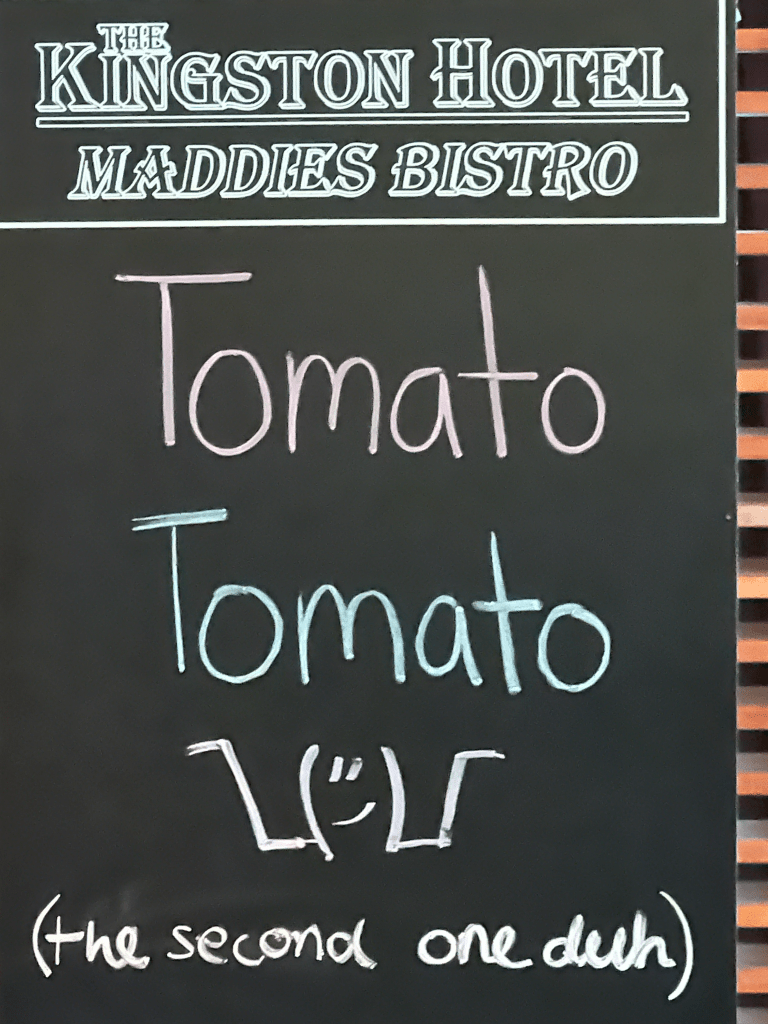 THE
KINGSTON HOTEL
MADDIES BISTRO
Tomato
Tomato
(the second one duh)